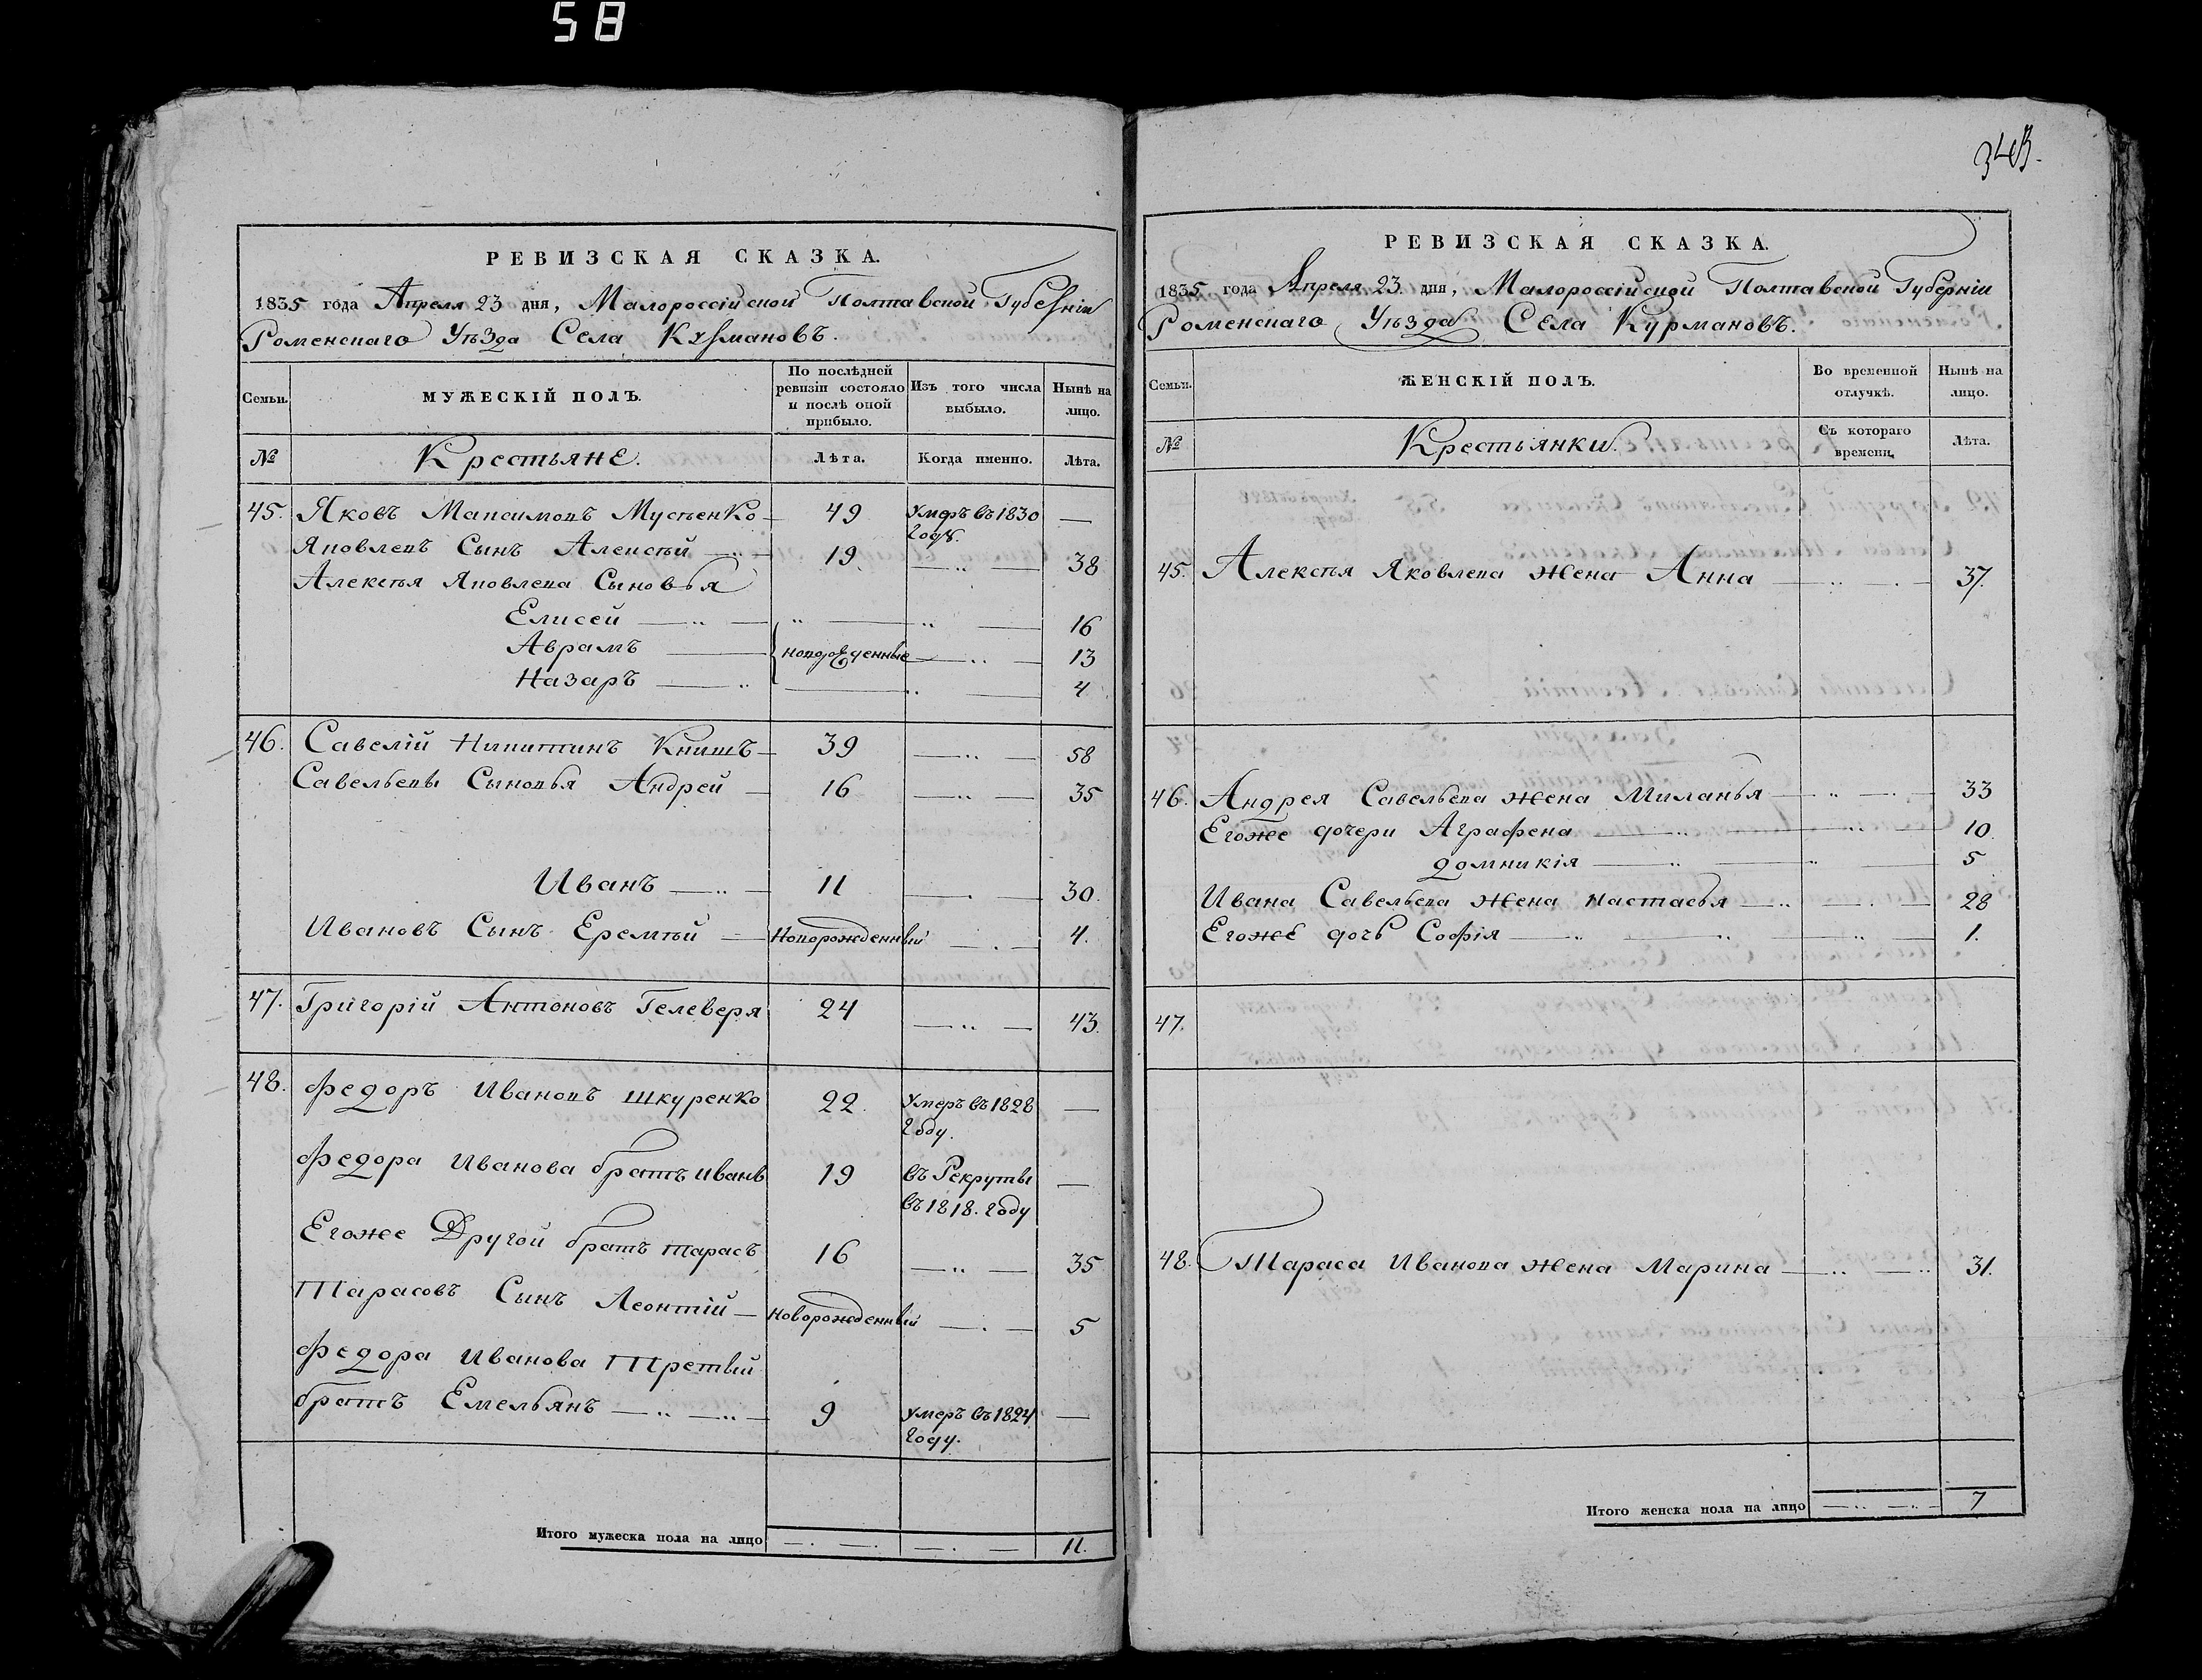 58
РЕВИЗСКАЯ СКАЗКА.
1835 года Апреля 23 дня, Малороссійской Полтавской Губерніи
Роменскаго Уѣзда Села Курмановъ.
Семьи.
МУЖЕСКІЙ ПОЛЪ.
По послѣдней
ревизіи состояло
и послѣ оной
прибыло.
Изъ того числа
выбыло.
Нынѣ на
лицо.
№ Крестьяне. Лѣта. Когда именно. Лѣта.
45. Яковъ Максимовъ Мусѣенко 49 умеръ въ 1830 —
году.
Яковлевъ Сынъ Алексѣй 19 38
Алексѣя Яковлева Сыновья
Елисей 16
Аврамъ новорожденные 13
Назаръ 4
46. Савелій Никитинъ Книшъ 39 58
Савельевы Сыновья Андрей 16 35
Иванъ 11 30.
Ивановъ Сынъ Еремѣй Новорожденный 4.
47. Григорій Антоновъ Гелеверя 24 43.
48. Федоръ Ивановъ Шкуренко 22. умеръ въ 1828 —
году.
Федора Иванова братъ иванъ 19 въ Рекруты —
въ 1818. году
Егоже Другой братъ тарасъ 16 35
Тарасовъ Сынъ Леонтій новорожденный 5
Федора Иванова Третьій
братъ Емельянъ 9 умеръ въ 1824 —
году.
Итого мужеска пола на лицо 11.
РЕВИЗСКАЯ СКАЗКА.
1835 года Апреля 23 дня, Малороссійской Полтавской Губерніи
Роменскаго Уѣзда Села Курмановъ.
Семьи.
ЖЕНСКІЙ ПОЛЪ.
Во временной
отлучкѣ.
Нынѣ на
лицо.
№ Крестьянки. Съ котораго
времени.
Лѣта.
45. Алексѣя Яковлева жена Анна 37.
46. Андрея Савельева жена Миланья 33
Егоже дочери Аграфена 10.
домникія 5
Ивана Савельева жена настасья 28
Егоже дочь Софія 1.
47.
48. Тараса Иванова жена Марина 31.
Итого женска пола на лицо 7